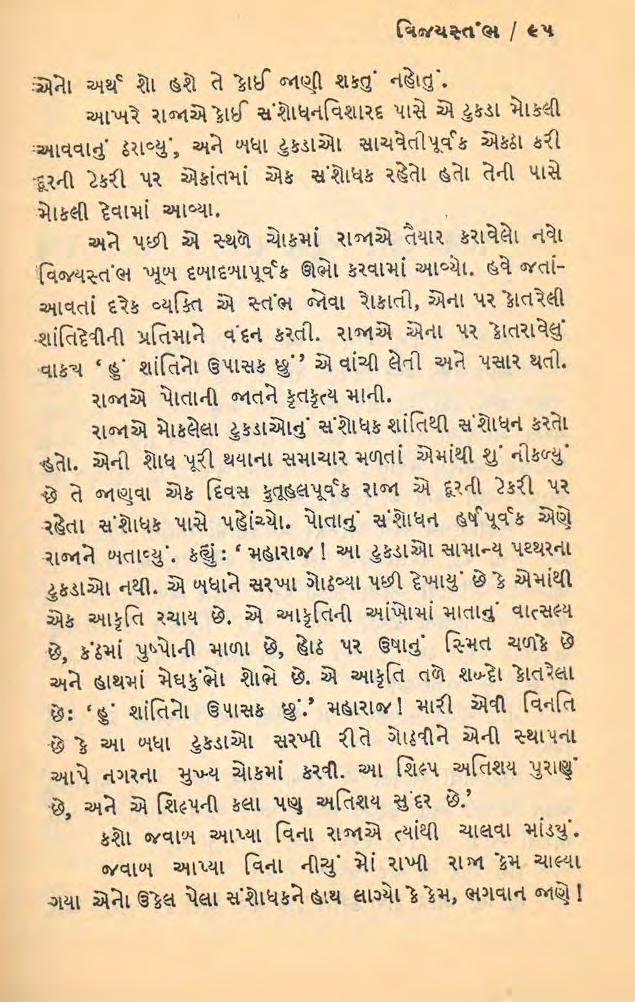 વિજયસ્તંભ / ૯૫
એનો અર્થ શો હશે તે કોઈ જાણી શકતું નહોતું.
આખરે રાજાએ કોઈ સંશોધનવિશારદ પાસે એ ટુકડા મોકલી
આવવાનું ઠરાવ્યું, અને બધા ટુકડાઓ સાચવેતીપૂર્વક એકઠા કરી
દૂરની ટેકરી પર એકાંતમાં એક સંશોધક રહેતો હતો તેની પાસે
મોકલી દેવામાં આવ્યા.
અને પછી એ સ્થળે ચોકમાં રાજાએ તૈયાર કરાવેલો નવો
વિજ્યસ્તંભ ખૂબ દબાદબાપૂર્વક ઊભો કરવામાં આવ્યો. હવે જતાં-
આવતાં દરેક વ્યક્તિ એ સ્તંભ જોવા રોકાતી, એના પર કોતરેલી
શાંતિદેવીની પ્રતિમાને વંદન કરતી. રાજાએ એના પર કોતરાવેલું
વાક્ય ‘ હું શાંતિનો ઉપાસક છું’’ એ વાંચી લેતી અને પસાર થતી.
રાજાએ પોતાની જાતને કૃતકૃત્ય માની.
રાજાએ મોકલેલા ટુકડાઓનું સંશોધક શાંતિથી સંશોધન કરતો
હતો. એની શોધ પૂરી થયાના સમાચાર મળતાં એમાંથી શું નીકળ્યું
છે તે જાણવા એક દિવસ કુતૂહલપૂર્વક રાજા એ દૂરની ટેકરી પર
રહેતા સંશોધક પાસે પહોંચ્યો. પોતાનું સંશોધન હર્ષપૂર્વક એણે
રાજાને બતાવ્યું. કહ્યું: ‘ મહારાજ ! આ ટુકડાઓ સામાન્ય પથ્થરના
ટુકડાઓ નથી. એ બધાને સરખા ગોઠવ્યા પછી દેખાયું છે કે એમાંથી
એક આકૃતિ રચાય છે. એ આકૃતિની આંખોમાં માતાનું વાત્સલ્ય
છે, કંઠમાં પુષ્પોની માળા છે, હોઠ પર ઉષાનું સ્મિત ચળકે છે
અને હાથમાં મેઘકુંભો શોભે છે. એ આકૃતિ તળે શબ્દો કોતરેલા
છે: ‘હું શાંતિનો ઉપાસક છું.’ મહારાજ ! મારી એવી વિનતિ
છે કે આ બધા ટુકડાઓ સરખી રીતે ગોઠવીને એની સ્થાપના
આપે નગરના મુખ્ય ચોકમાં કરવી. આ શિલ્પ અતિશય પુરાણું
છે, અને એ શિલ્પની કલા પણ અતિશય સુંદર છે.’
કશો જવાબ આપ્યા વિના રાજાએ ત્યાંથી ચાલવા માંડ્યું.
જવાબ આપ્યા વિના નીચું મોં રાખી રાજા કેમ ચાલ્યા
ગયા એનો ઉકેલ પેલા સંશોધકને હાથ લાગ્યો કે કેમ, ભગવાન જાણે !